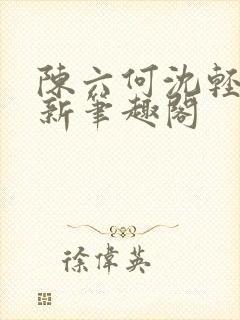 陳六何沈輕
新筆趣閣
徐偉英